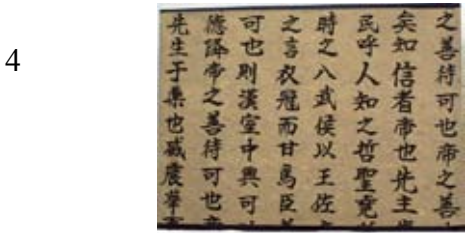 4
之善待可也帝之善
矣知信者帝也先主
民呼人知之哲聖堯
時之八武侯以王佐
之言衣冠而甘為臣
可也則漢室中興可
德諱帝之善待可也
先生于集也感震華